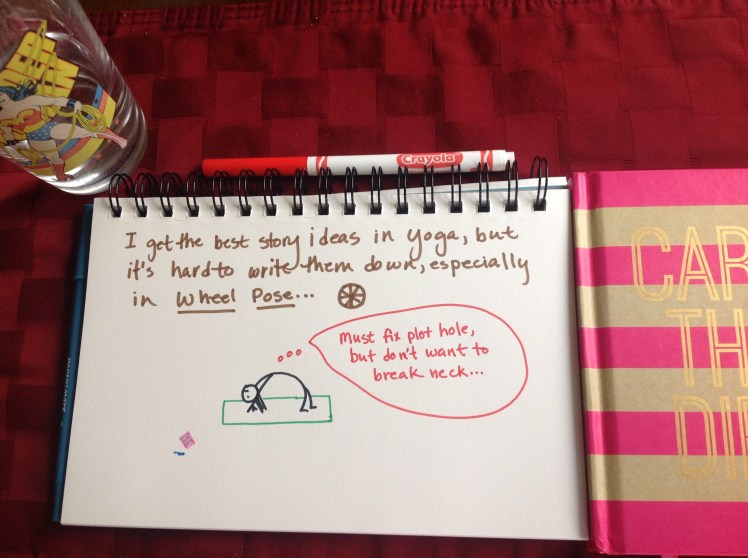 Crayola
I get the best story ideas in yoga, but
it's hard to write them down, especially
in Wheel Pose...
Must fix plot hole,
but don't want to
break neck...
CAR
TH
DI